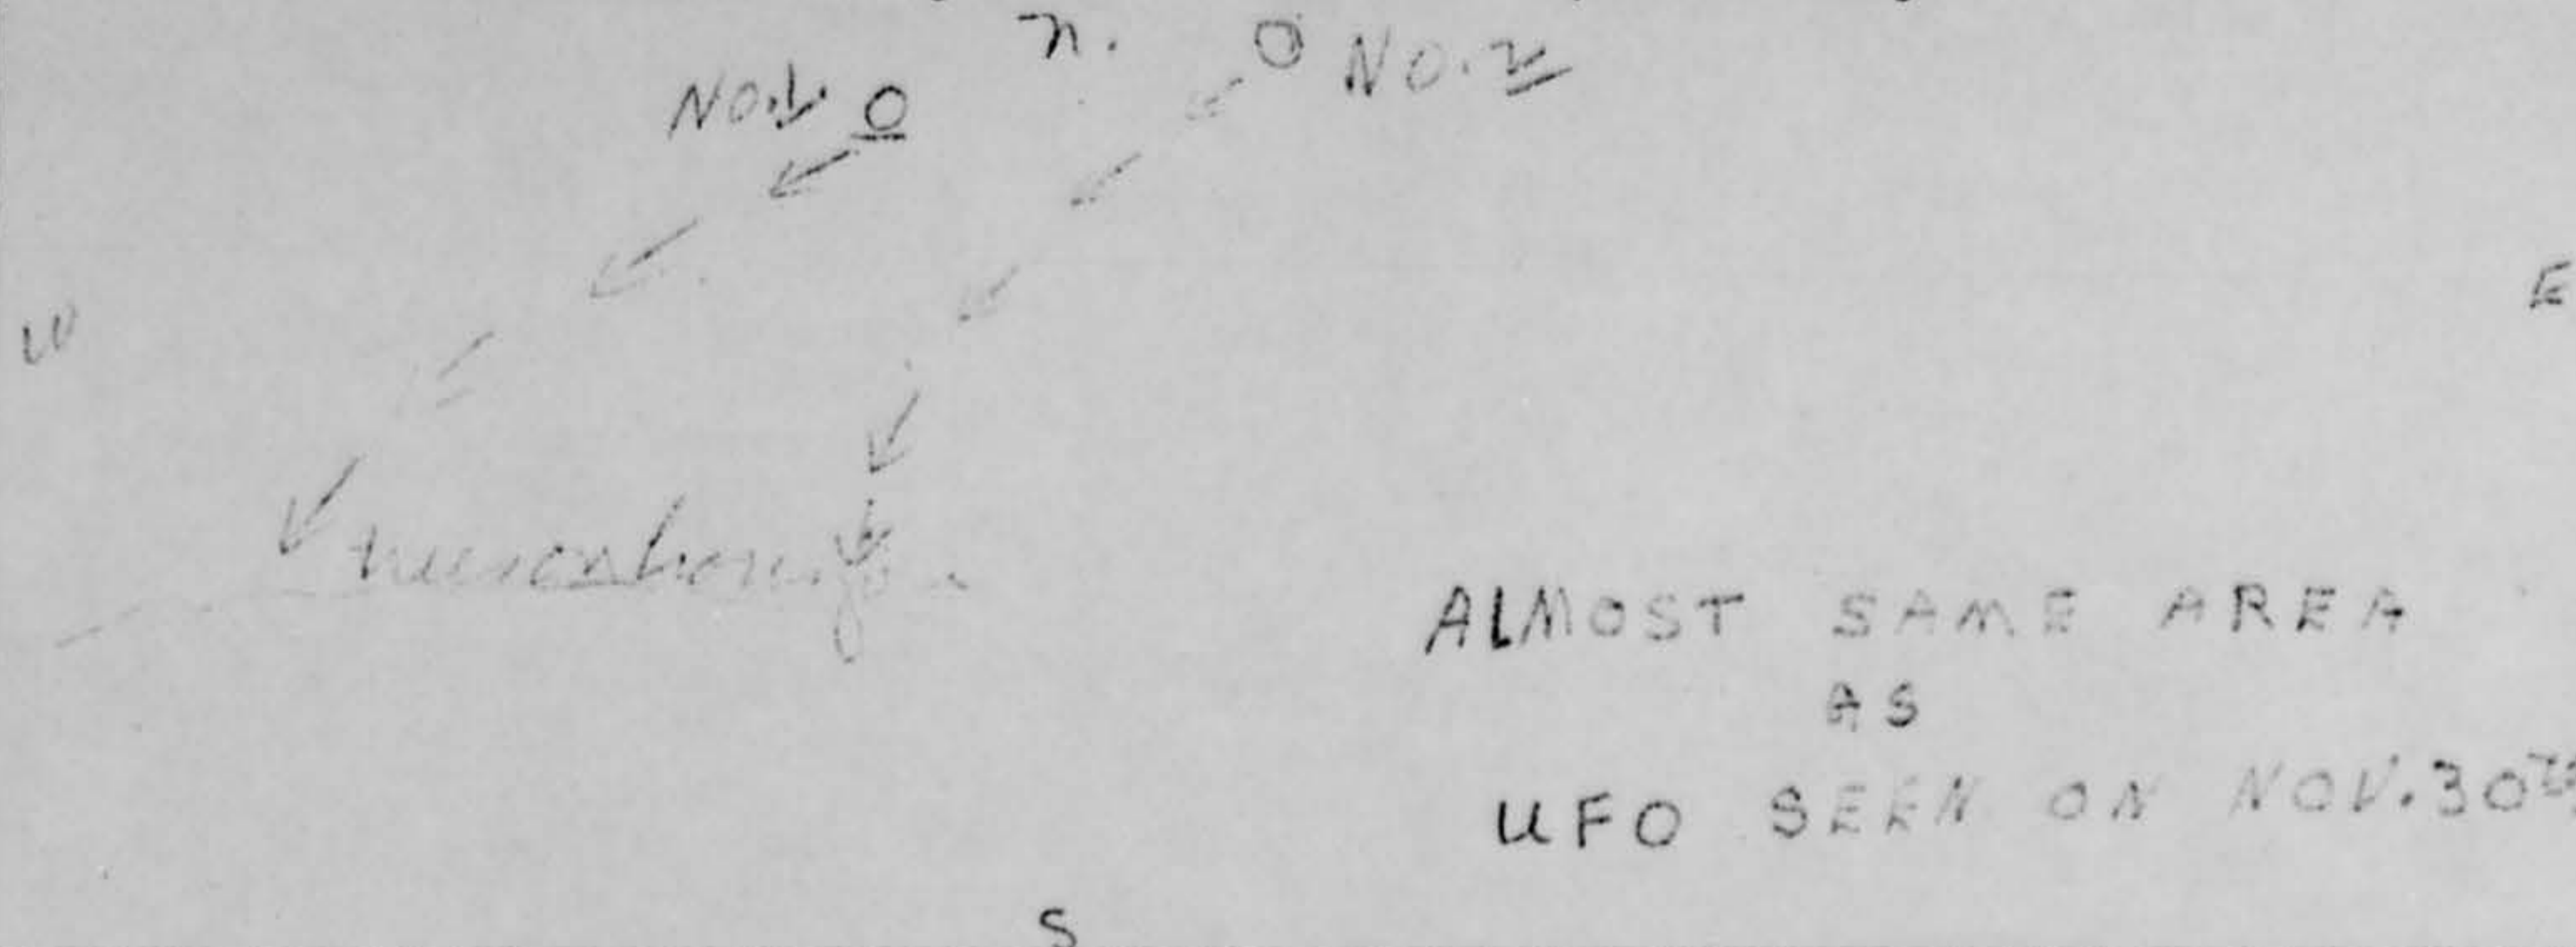 n.
NO. 1. O
O NO. 2
W
E
ALMOST SAME AREA
AS
UFO SEEN ON NOV. 30th
S